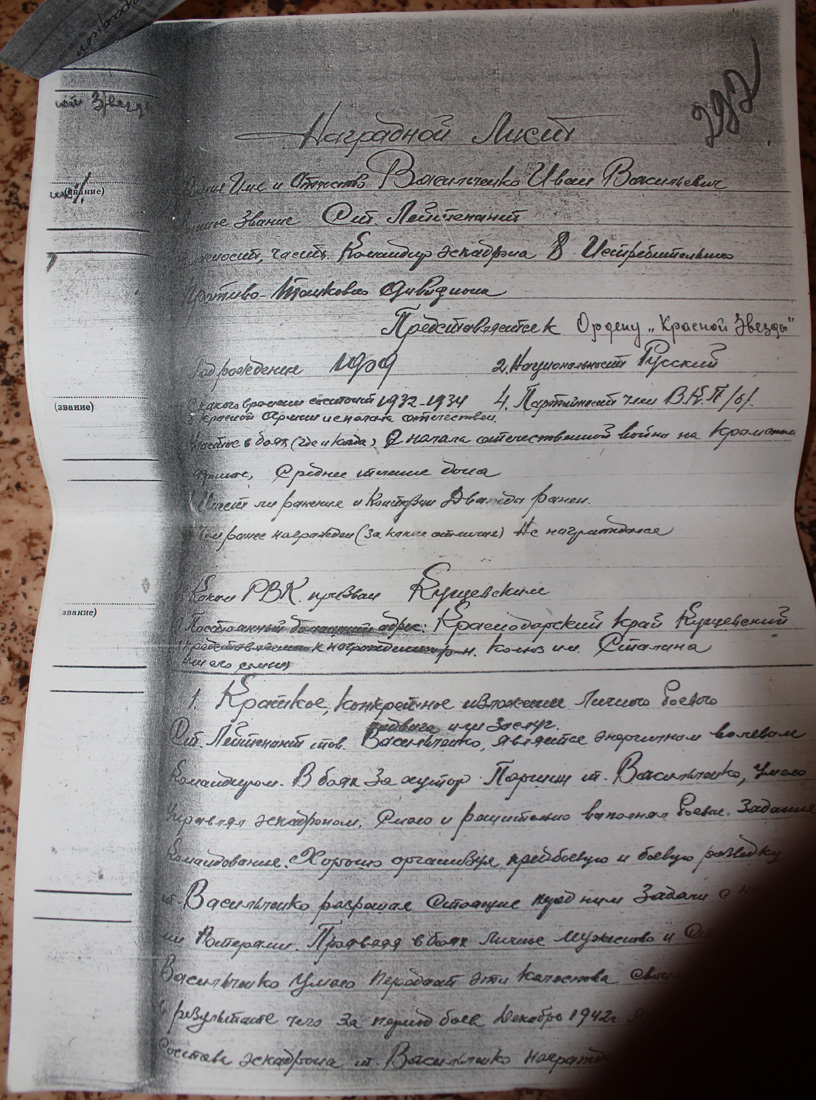 292
ной Звезды
Наградной Лист
Имя и Отчество Васильченко Иван Васильевич
(звание)
Звание Ст Лейтенант
часть Командир эскадрона 8 Истребительного
Противо-Танкового дивизиона
Представляется к Ордену "Красной Звезды"
Год рождения 1909 2. Национальность Русский
(звание)
какого времени состоит 1932-1934 4. Партийность член В.К.П/б/.
в красной Армии и с начала отечествен.
Участие в боях (где и когда) С начала отечественной войны на
Среднее течение дона
Имеет ли ранения и Контузии Дважды ранен.
Чем ранее награжден (за какие отличия) Не награждался
Каким РВК призван Кущевским
звание)
Постоянный домашний адрес: Краснодарский край Кущевский
представляемого к награждению р-н. Колхоз им. Сталина
и его семьи
1. Краткое, конкретное изложение Личного боевого
подвига или заслуг.
Ст. Лейтенант тов. Васильченко, является энергичным волевым
Командиром. В боях За хутор ст. Васильченко, умело
управляя эскадроном. Смело и решительно выполнял боевые. Задания
Командования. Хорошо организуя и боевую разведку
Васильченко разрешал стоящие пред ним Задачи с
ми Потерями. Проявляя в боях личное мужество и
Васильченко умело передает эти качества
в результате чего За период боев Декабрь 1942г
состава эскадрона Васильченко